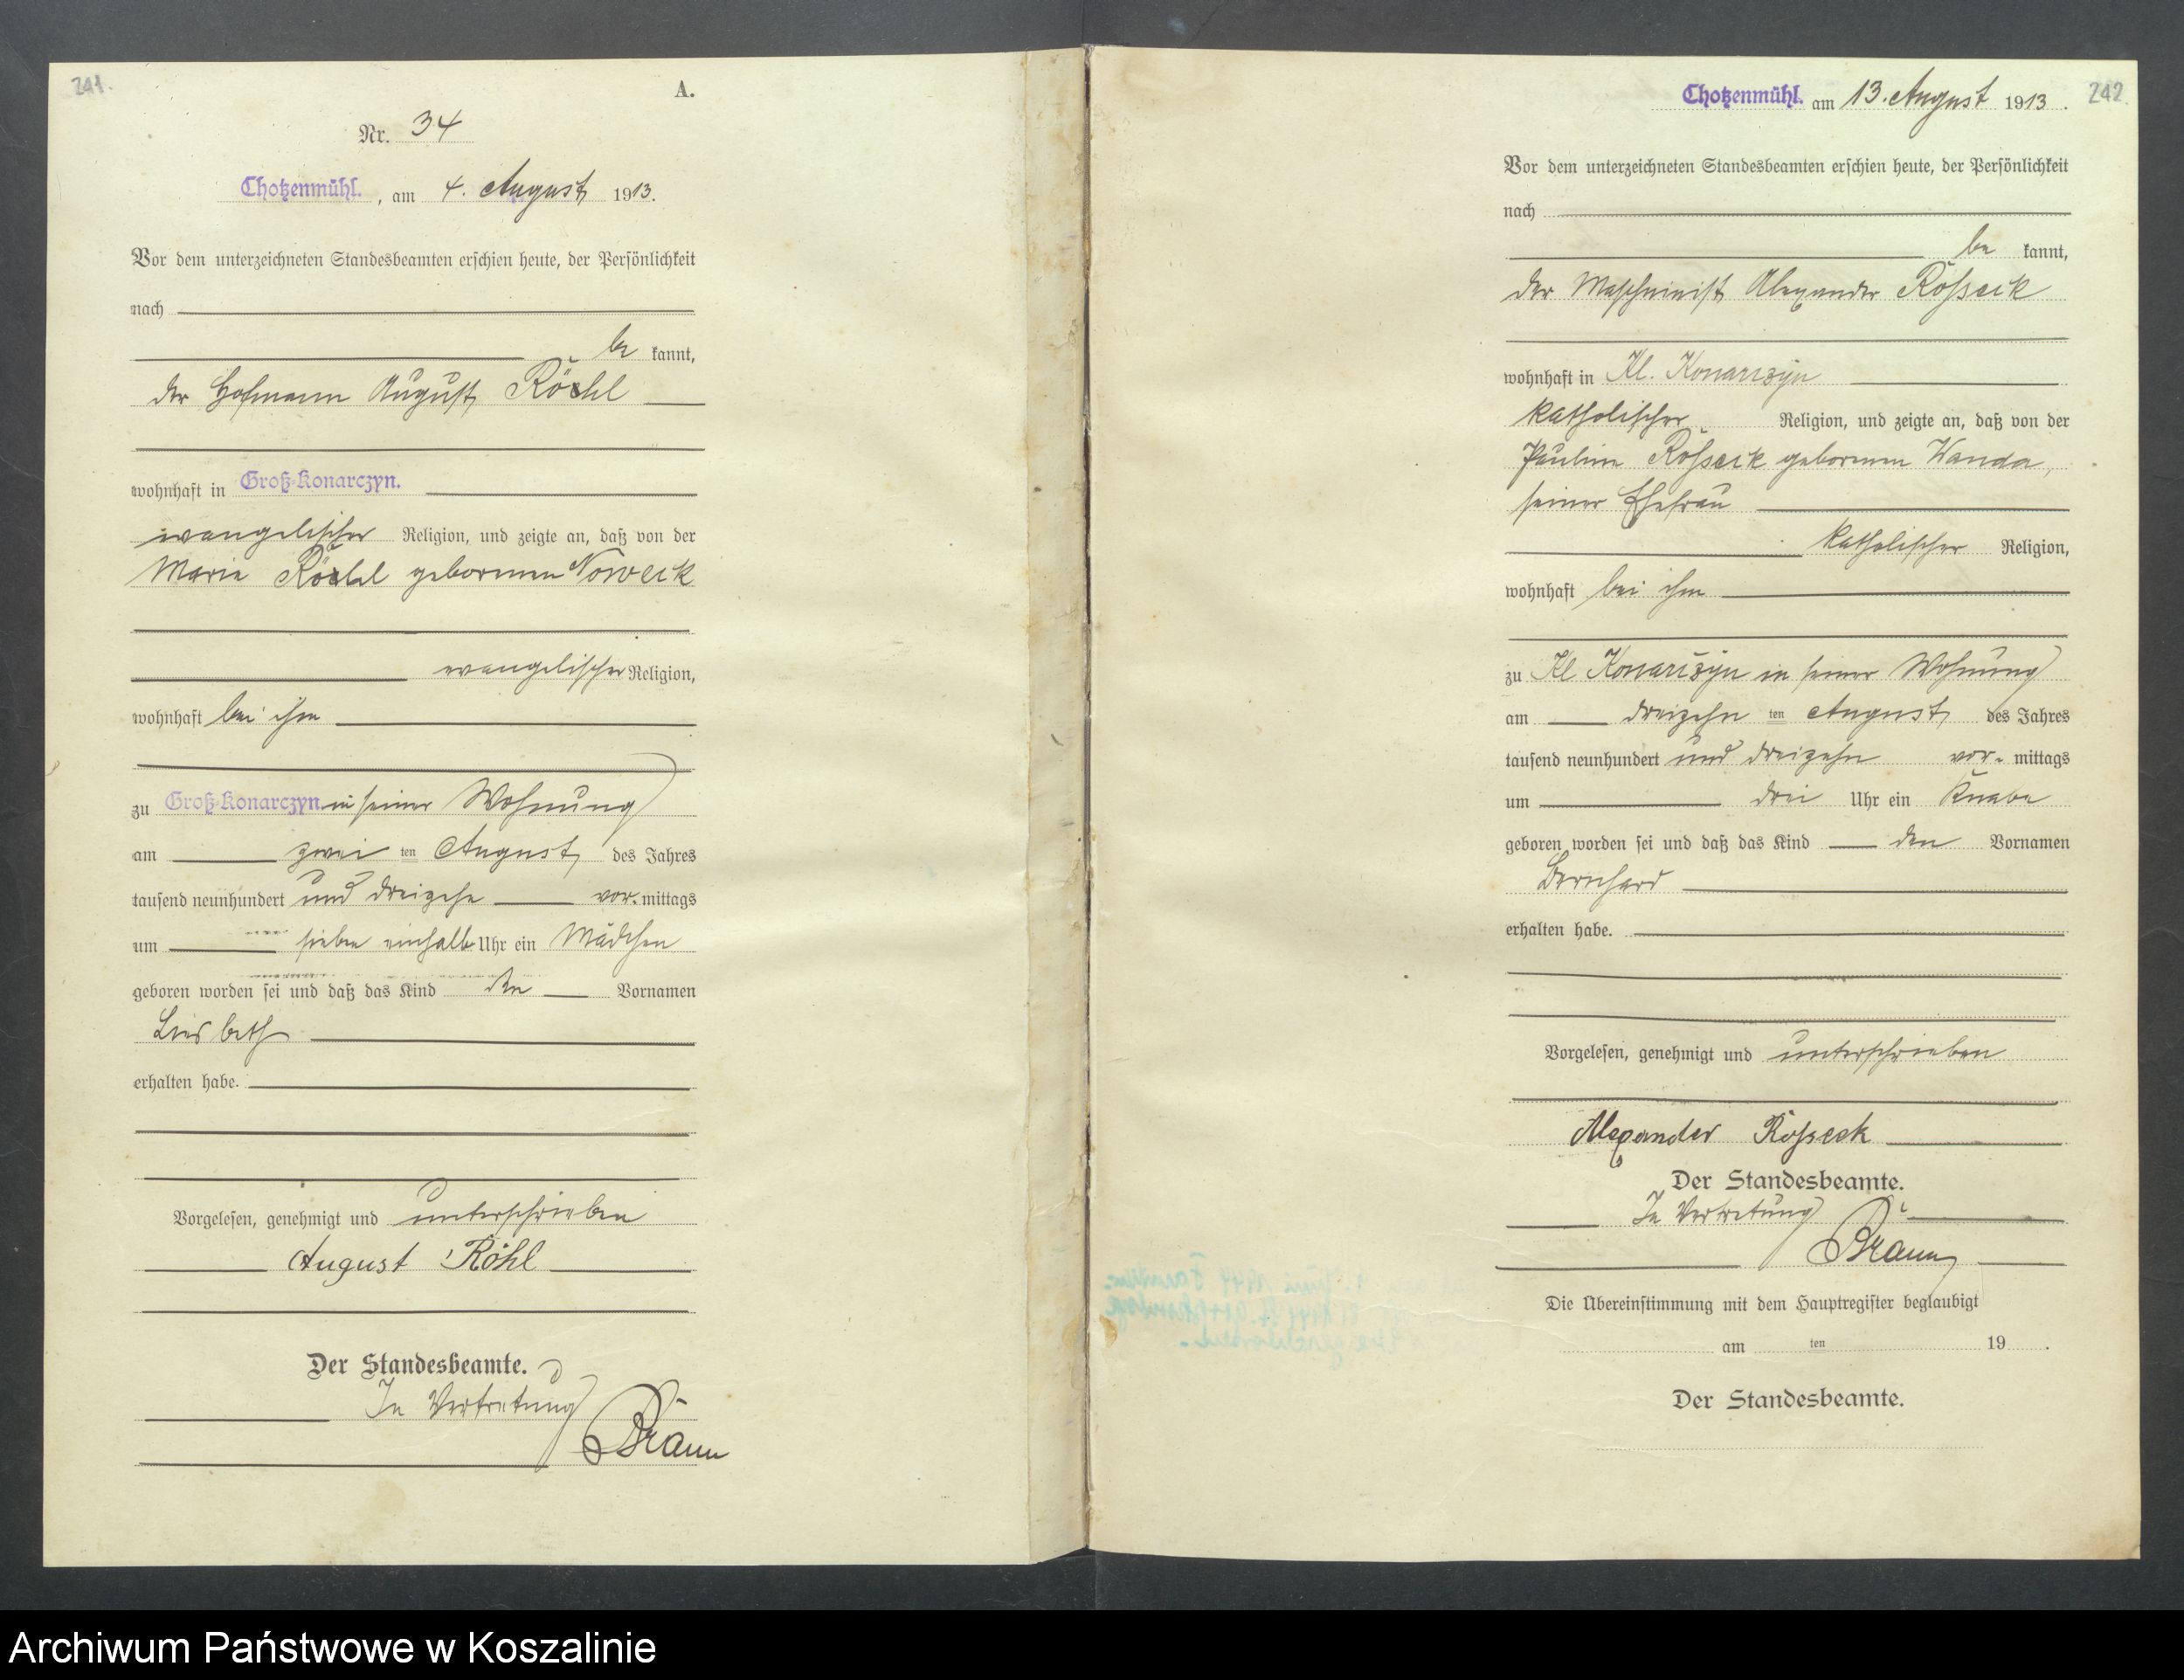 241.
A.
Nr. 34
Chotzenmühl. , am 4. August 1913.
Vor dem unterzeichneten Standesbeamten erschien heute, der Persönlichkeit
nach
be kannt,
der Hofmann August Röhl
wohnhaft in Groß-Konarczyn.
evangelischer Religion, und zeigte an, daß von der
Marie Röhl geborenen Noweck
evangelischer Religion,
wohnhaft bei ihm
zu Groß-Konarczyn in seiner Wohnung
am zwei ten August des Jahres
tausend neunhundert und dreizehn vor- mittags
um sieben einhalb Uhr ein Mädchen
geboren worden sei und daß das Kind den Vornamen
Liesbeth
erhalten habe.
Vorgelesen, genehmigt und unterschrieben
August Röhl
Der Standesbeamte.
In Vertretung
Braun
Chotzenmühl. am 13. August 1913. 242
Vor dem unterzeichneten Standesbeamten erschien heute, der Persönlichkeit
nach
be kannt,
der Maschinist Alexander Rösseck
wohnhaft in Kl. Konarczyn
katholischer Religion, und zeigte an, daß von der
Pauline Rösseck geborenen Wanda,
seiner Ehefrau
katholischer Religion,
wohnhaft bei ihm
zu Kl Konarczyn in seiner Wohnung
am dreizehn ten August des Jahres
tausend neunhundert und dreizehn vor- mittags
um drei Uhr ein Knabe
geboren worden sei und daß das Kind den Vornamen
Bernhard
erhalten habe.
Vorgelesen, genehmigt und unterschrieben
Alexander Rösseck
Der Standesbeamte.
In Vertretung
Braun
Die Übereinstimmung mit dem Hauptregister beglaubigt
am ten 19 .
Der Standesbeamte.
Archiwum Państwowe w Koszalinie